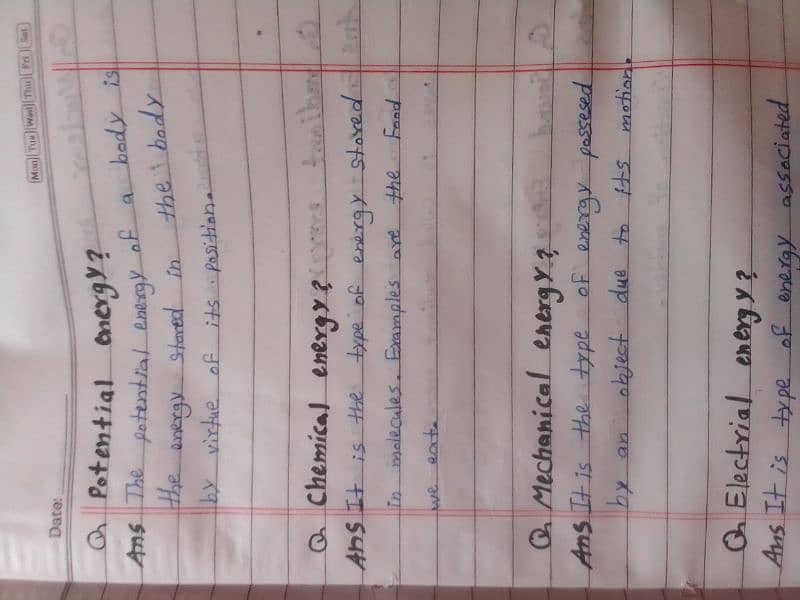 Mon Tue Wed Thu Fri Sat
Date:
Q Potential energy?
Ans The potential energy of a body is
the energy stored in the body
by virtue of its position.
Q Chemical energy?
Ans It is the type of energy stored
in molecules. Examples are the Food
we eat.
Q Mechanical energy?
Ans It is the type of energy possesed
by an object due to its motion.
Q Electrial energy?
Ans It is type of energy associated